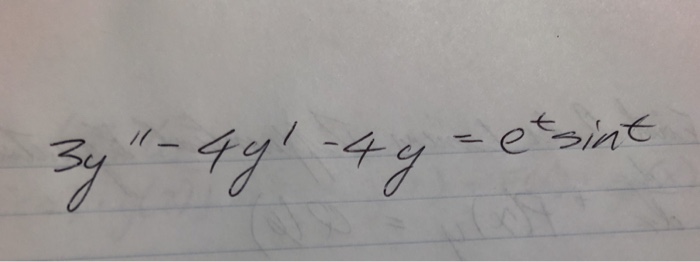 3y" - 4y' - 4y = e^t sint